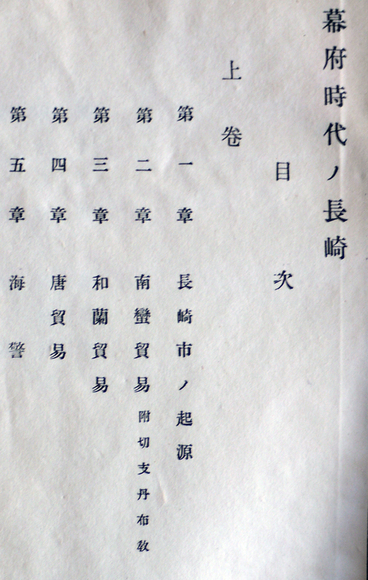 幕府時代ノ長崎
目次
上卷
第一章 長崎市ノ起源
第二章 南蠻貿易 附切支丹布敎
第三章 和蘭貿易
第四章 唐貿易
第五章 海警